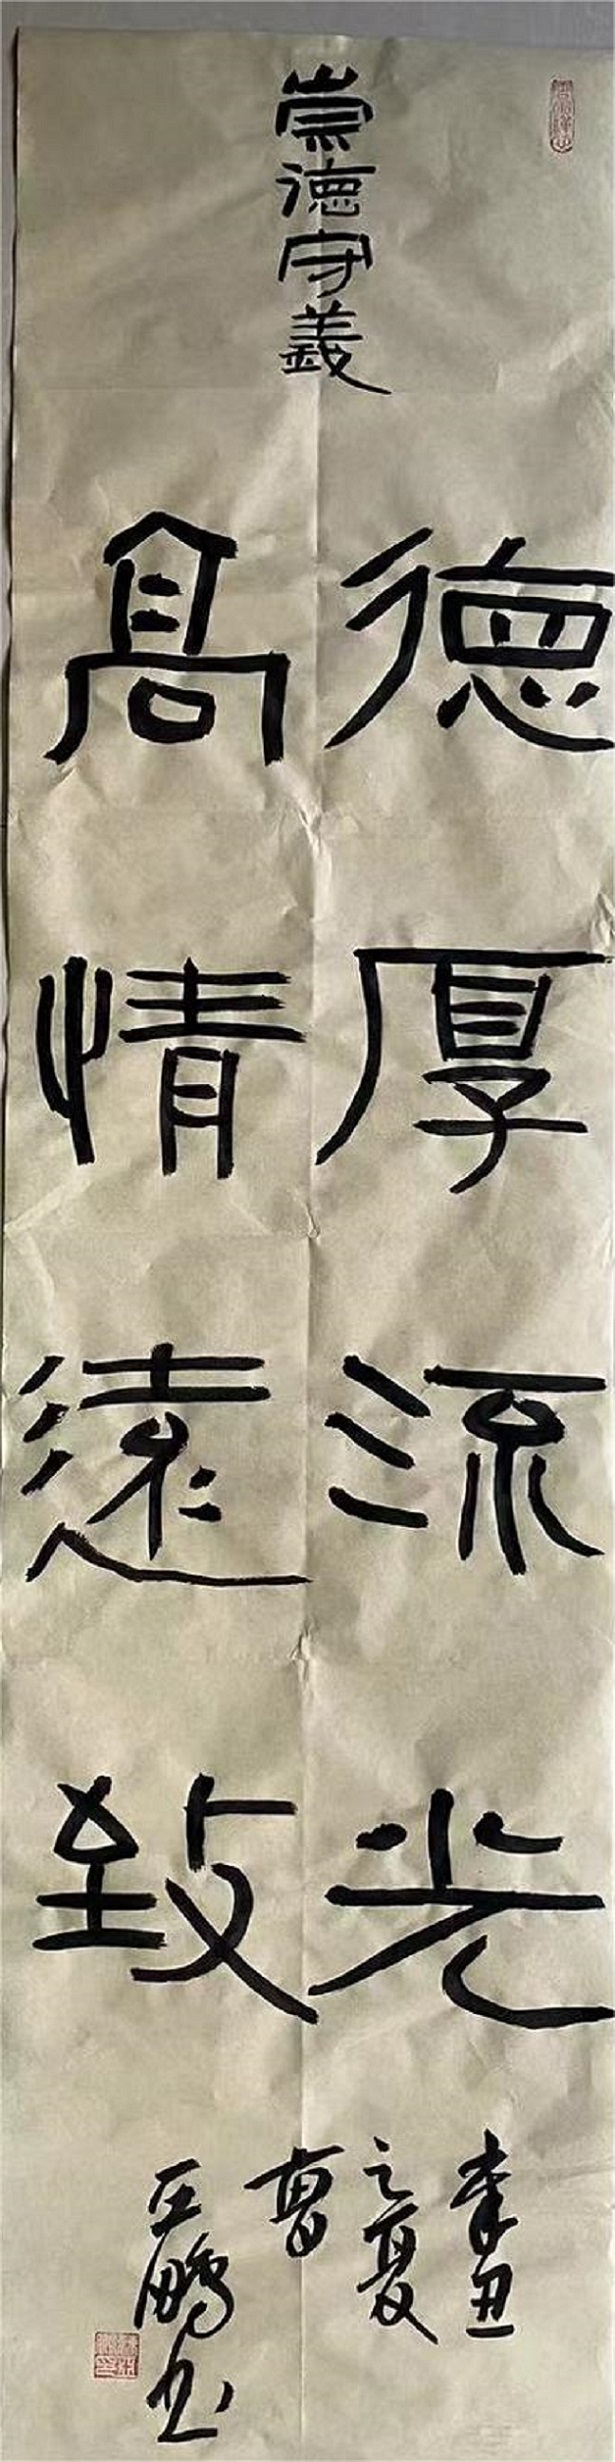 崇德守義
德厚流光
高情遠致
辛丑
之夏
曹
正鵬书